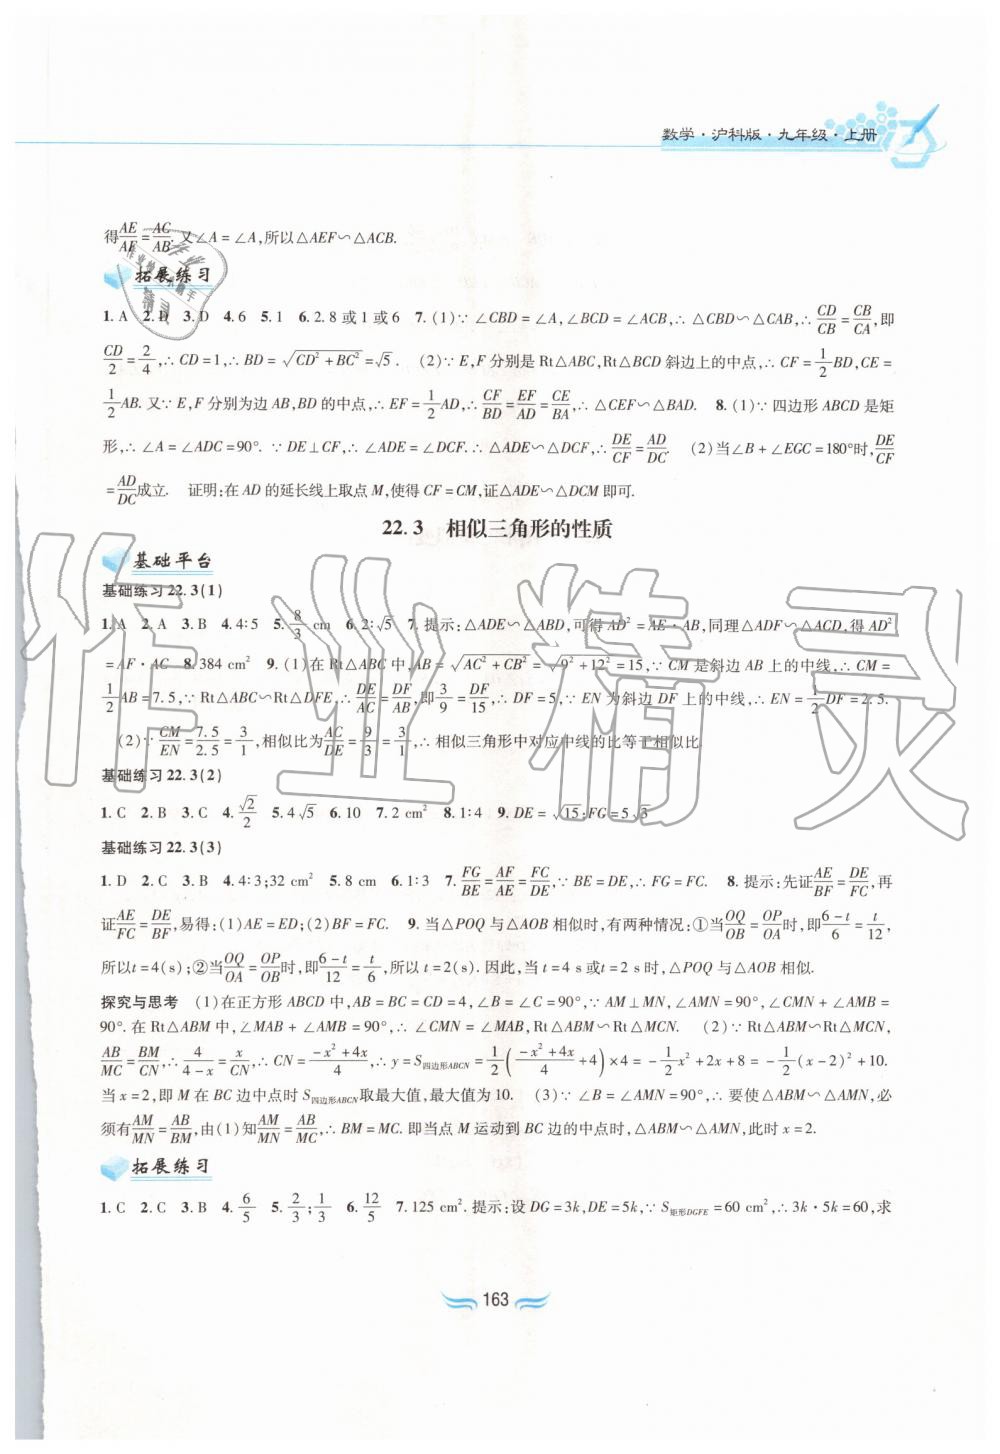 数学·沪科版·九年级·上册
得AE/AF=AC/AB.又∠A=∠A,所以△AEF∽△ACB.
拓展练习
1.A 2.D 3.D 4.6 5.1 6.2.8或1或6 7.(1)∵∠CBD=∠A,∠BCD=∠ACB,∴△CBD∽△CAB,∴CD/CB=CB/CA,即
CD/2=2/4,∴CD=1,∴BD=√(CD²+BC²)=√5. (2)∵E,F分别是Rt△ABC,Rt△BCD斜边上的中点,∴CF=1/2BD,CE=
1/2AB.又∵E,F分别为边AB,BD的中点,∴EF=1/2AD,∴CF/BD=EF/AD=CE/BA,∴△CEF∽△BAD. 8.(1)∵四边形ABCD是矩
形,∴∠A=∠ADC=90°.∵DE⊥CF,∴∠ADE=∠DCF.∴△ADE∽△DCF,∴DE/CF=AD/DC. (2)当∠B+∠EGC=180°时,DE/CF
=AD/DC成立. 证明:在AD的延长线上取点M,使得CF=CM,证△ADE∽△DCM即可.
22.3 相似三角形的性质
基础平台
基础练习22.3(1)
1.A 2.A 3.B 4.4∶5 5.8/3 cm 6.2∶√5 7.提示:△ADE∽△ABD,可得AD²=AE·AB,同理△ADF∽△ACD,得AD²
=AF·AC 8.384 cm² 9.(1)在Rt△ABC中,AB=√(AC²+CB²)=√(9²+12²)=15,∵CM是斜边AB上的中线,∴CM=
1/2AB=7.5,∵Rt△ABC∽Rt△DFE,∴DE/AC=DF/AB,即3/9=DF/15,∴DF=5,∵EN为斜边DF上的中线,∴EN=1/2DF=2.5.
(2)∵CM/EN=7.5/2.5=3/1,相似比为AC/DE=9/3=3/1,∴相似三角形中对应中线的比等于相似比.
基础练习22.3(2)
1.C 2.B 3.C 4.√2/2 5.4√5 6.10 7.2 cm² 8.1∶4 9.DE=√15;FG=5√3
基础练习22.3(3)
1.D 2.C 3.B 4.4∶3;32 cm 5.8 cm 6.1∶3 7.FG/BE=AF/AE=FC/DE,∵BE=DE,∴FG=FC. 8.提示:先证AE/BF=DE/FC,再
证AE/FC=DE/BF,易得:(1)AE=ED;(2)BF=FC. 9.当△POQ与△AOB相似时,有两种情况:①当OQ/OB=OP/OA时,即(6-t)/6=t/12,
所以t=4(s);②当OQ/OA=OP/OB时,即(6-t)/12=t/6,所以t=2(s).因此,当t=4 s或t=2 s时,△POQ与△AOB相似.
探究与思考 (1)在正方形ABCD中,AB=BC=CD=4,∠B=∠C=90°.∵AM⊥MN,∠AMN=90°,∠CMN+∠AMB=
90°.在Rt△ABM中,∠MAB+∠AMB=90°,∴∠CMN=∠MAB,Rt△ABM∽Rt△MCN. (2)∵Rt△ABM∽Rt△MCN,
AB/MC=BM/CN,∴4/(4-x)=x/CN,∴CN=(-x²+4x)/4,∴y=S四边形ABCN=1/2((-x²+4x)/4+4)×4=-1/2x²+2x+8=-1/2(x-2)²+10.
当x=2,即M在BC边中点时S四边形ABCN取最大值,最大值为10. (3)∵∠B=∠AMN=90°,∴要使△ABM∽△AMN,必
须有AM/MN=AB/BM,由(1)知AM/MN=AB/MC,∴BM=MC.即当点M运动到BC边的中点时,△ABM∽△AMN,此时x=2.
拓展练习
1.C 2.C 3.B 4.6/5 5.2/3;1/3 6.12/5 7.125 cm².提示:设DG=3k,DE=5k,∵S矩形DGFE=60 cm²,∴3k·5k=60,求
163
作业精灵